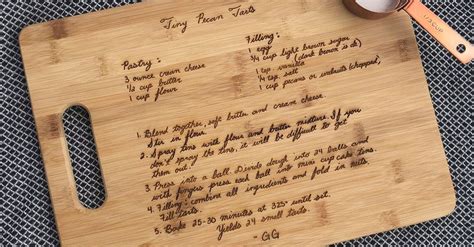 Tiny Pecan Tarts
Pastry:
3 ounce cream cheese
1/2 cup butter
1 cup flour
Filling:
1 egg
3/4 cup light brown sugar
(dark brown is ok)
1 t. vanilla
1/4 t. salt
1 cup pecans or walnuts (chopped)
1. Blend together, soft butter and cream cheese.
Stir in flour.
2. Spray tins with flour and butter mixture. If you
don't spray the tins, it will be difficult to get
them out!
3. Press into a ball. Divide dough into 24 balls and
with fingers press each ball into mini cup cake tins.
4. Filling: combine all ingredients and fold in nuts.
Fill tarts.
5. Bake 25-30 minutes at 325° until set.
Yields 24 small tarts.
- GG
1/3 CUP